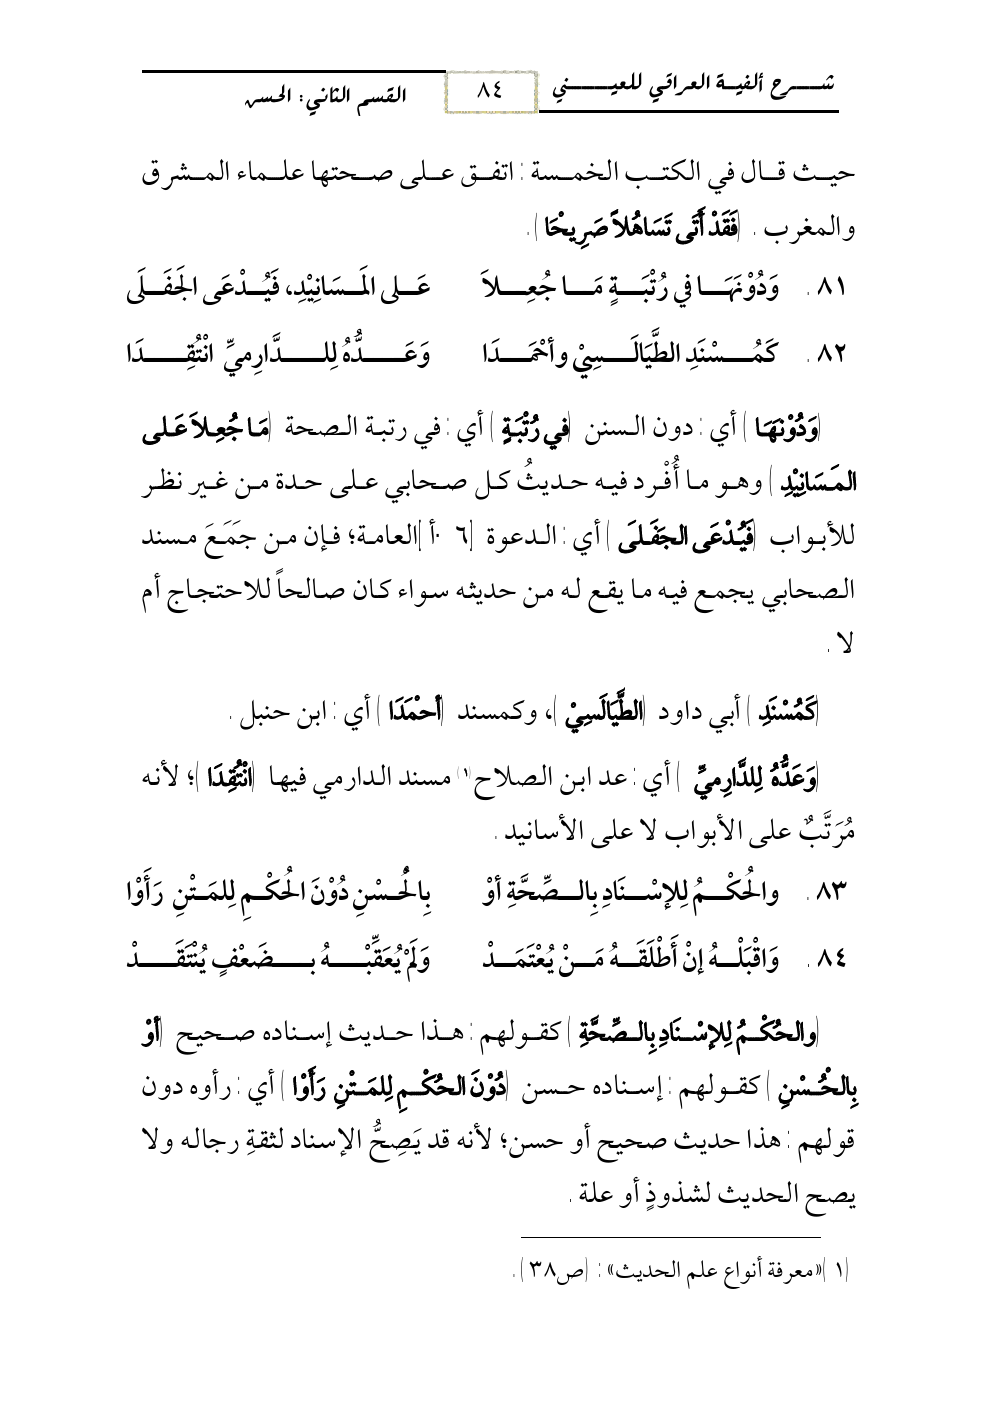 شـرح ألفيـة العراقي للعيـني
٨٤
القسم الثاني: الحسن
حيث قال في الكتب الخمسة : اتفق على صحتها علماء المشرق
والمغرب . (فَقَدْ أَتَى تَسَاهُلاً صَرِيحًا).
٨١ . وَدُوْنَهَا في رُتْبَةٍ مَا جُعِلاَ عَلى المَسَانِيْدِ، فَيُدْعَى الجَفَلَى
٨٢ . كَمُسْنَدِ الطَّيَالَسِيْ وأحْمَدَا وَعَدُّهُ لِلدَّارِميِّ انْتُقِدَا
(وَدُوْنَهَا) أي : دون السنن (في رُتْبَةٍ) أي : في رتبة الصحة (مَا جُعِلاَ عَلى
المَسَانِيْدِ) وهو ما أُفْرد فيه حديثُ كل صحابي على حدة من غير نظر
للأبواب (فَيُدْعَى الجَفَلَى) أي : الدعوة [٦٠أ] العامة؛ فإن من جَمَعَ مسند
الصحابي يجمع فيه ما يقع له من حديثه سواء كان صالحاً للاحتجاج أم
لا .
(كَمُسْنَدِ) أبي داود (الطَّيَالَسِيْ)، وكمسند (أحْمَدَا) أي : ابن حنبل .
(وَعَدُّهُ لِلدَّارِميِّ) أي : عد ابن الصلاح(١) مسند الدارمي فيها (انْتُقِدَا)؛ لأنه
مُرَتَّبٌ على الأبواب لا على الأسانيد .
٨٣ . والحُكْمُ لِلإسْنَادِ بِالصِّحَّةِ أوْ بِالحُسْنِ دُوْنَ الحُكْمِ لِلمَتْنِ رَأَوْا
٨٤ . وَاقْبَلْهُ إنْ أَطْلَقَهُ مَنْ يُعْتَمَدْ وَلَمْ يُعَقِّبْهُ بِضَعْفٍ يُنْتَقَدْ
(والحُكْمُ لِلإسْنَادِ بِالصِّحَّةِ) كقولهم : هذا حديث إسناده صحيح (أوْ
بِالحُسْنِ) كقولهم : إسناده حسن (دُوْنَ الحُكْمِ لِلمَتْنِ رَأَوْا) أي : رأوه دون
قولهم : هذا حديث صحيح أو حسن؛ لأنه قد يَصِحُّ الإسناد لثقةِ رجاله ولا
يصح الحديث لشذوذٍ أو علة .
(١) «معرفة أنواع علم الحديث» : (ص٣٨).